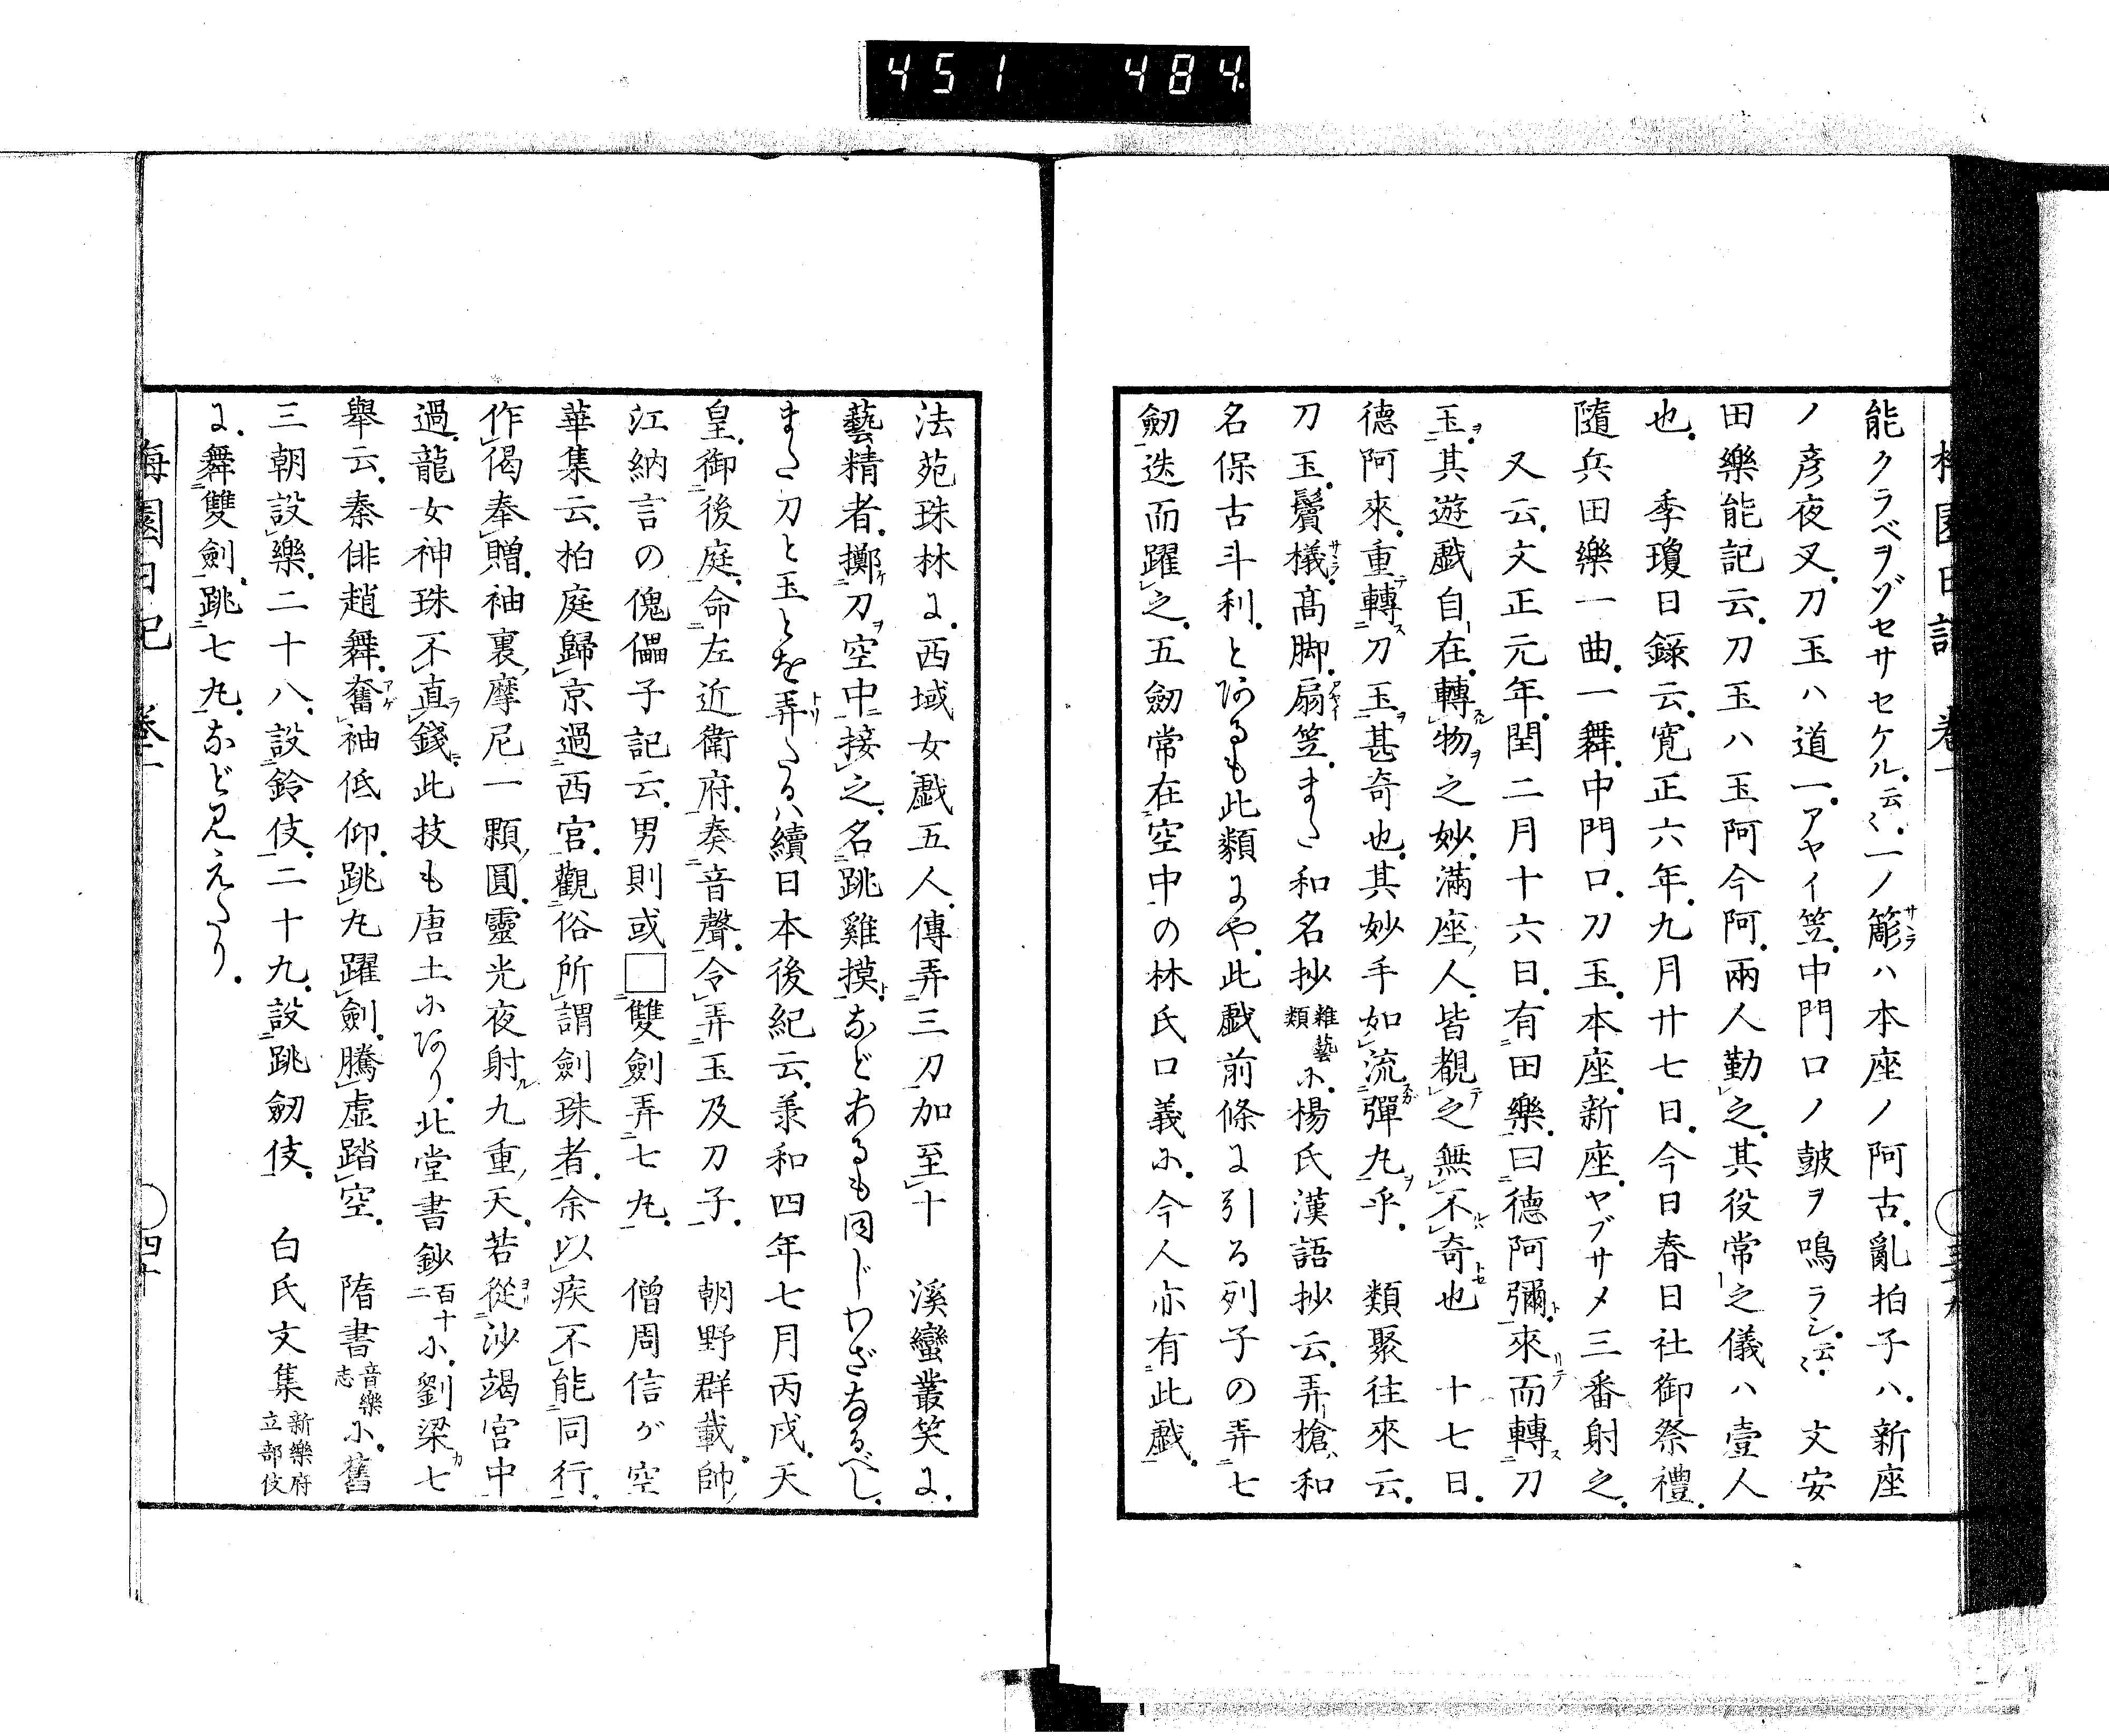 451 484
能クラベヲゾセサセケル。云〻。一ノ簓ハ本座ノ阿古。亂拍子ハ。新座
ノ彦夜叉。刀玉ハ道一。アヤイ笠。中門口ノ皷ヲ鳴ラシ。云〻。 文安
田樂能記云。刀玉ハ玉阿今阿。兩人勤之。其役常之儀ハ壹人
也。 季瓊日錄云。寛正六年。九月廿七日。今日春日社御祭禮。
隨兵田樂一曲。一舞。中門口。刀玉。本座。新座。ヤブサメ三番射之。
又云。文正元年。閏二月十六日。有田樂。曰德阿彌。來而轉刀
玉。其遊戲自在。轉物之妙。滿座人。皆覩之無不奇也 十七日。
德阿來。重轉刀玉。甚奇也。其妙手如流彈丸乎。 類聚往來云。
刀玉。鬢樣。高脚。扇笠。また和名抄雜藝類に。楊氏漢語抄云。弄槍。和
名保古斗利。とあるも此類にや。此戲前條に引る列子の弄七
劒迭而躍之。五劒常在空中の林氏口義に。今人亦有此戲。
法苑珠林に。西域女戲五人。傳弄三刀加至十 溪蠻叢笑に。
藝精者。擲刀空中接之。名跳雞摸。などあるも同じわざなるべし。
また刀と玉とを弄たるハ續日本後紀云。羕和四年七月丙戌。天
皇。御後庭。命左近衛府。奏音聲。令弄玉及刀子。 朝野群載。帥
江納言の傀儡子記云。男則或□雙劍弄七丸。 僧周信ガ空
華集云。柏庭歸京過西宮。觀俗所謂劍珠者。余以疾不能同行。
作偈奉贈。袖裏摩尼一顆圓。靈光夜射九重天。若從沙竭宮中
過。龍女神珠不直錢。此技も唐土にあり。北堂書鈔百十二に。劉梁七
舉云。秦俳趙舞。奮袖低仰。跳丸躍劍。騰虛踏空。 隋書音樂志に。舊
三朝設樂。二十八。設鈴伎。二十九。設跳劒伎。 白氏文集新樂府立部伎
に。舞雙劍。跳七丸。など見えたり。
梅園日記 卷一 四十